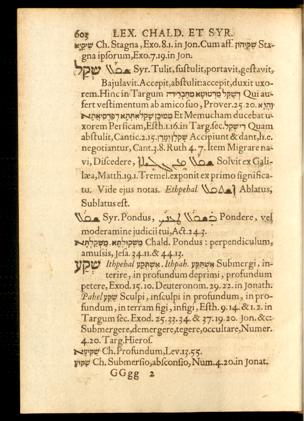 603 LEX. CHALD. ET SYR.
שיקיא Ch. Stagna, Exo. 8.1. in Jon. Cum aff. שיקיהון Sta-
gna ipsorum, Exo. 7.19. in Jon.
שקל Syr. Tulit, sustulit, portavit, gestavit,
Bajulavit. Accepit, abstulit: accepit, duxit uxo-
rem. Hinc in Targum Qui au-
fert vestimentum ab amico suo, Prover. 25. 20.
Et Memuchan ducebat u-
xorem Persicam, Esth. 1.16. in Targ. sec. Quam
abstulit, Cantic. 2.15. Accipiunt & dant, h.e.
negotiantur, Cant. 3.8. Ruth 4. 7. Item Migrare na-
vi, Discedere, Solvit ex Gali-
læa, Matth. 19.1. Tremel. exponit ex primo significa-
tu. Vide ejus notas. Ethpehal Ablatus,
Sublatus est.
Syr. Pondus, Pondere, vel
moderamine judicii tui, Act. 24.3.
Chald. Pondus: perpendiculum,
amussis, Jesa. 34.11. & 44.13.
שקע Ithpehal Ithpah. Submergi, in-
terire, in profundum deprimi, profundum
petere, Exod. 15.10. Deuteronom. 29.22. in Jonath.
Pahel שקע Sculpi, insculpi in profundum, in pro-
fundum, in terram figi, infigi, Esth. 9.14. & 1. 2. in
Targum sec. Exod. 25.33.34. & 37.19.20. Jon. &c:
Submergere, demergere, tegere, occultare, Numer.
4.20. Targ. Hieros.
Ch. Profundum, Lev. 13.55.
Ch. Submersio, absconsio, Num. 4.20. in Jonat.
GGgg 2